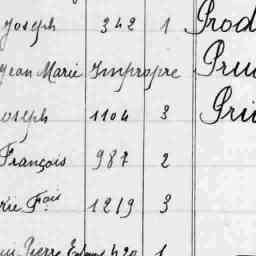 Joseph 342 1 Prod
Jean Marie Impropre Pru
oseph 1104 3 Pri
François 987 2
rie Fois 1219 3
Pierre 420 1